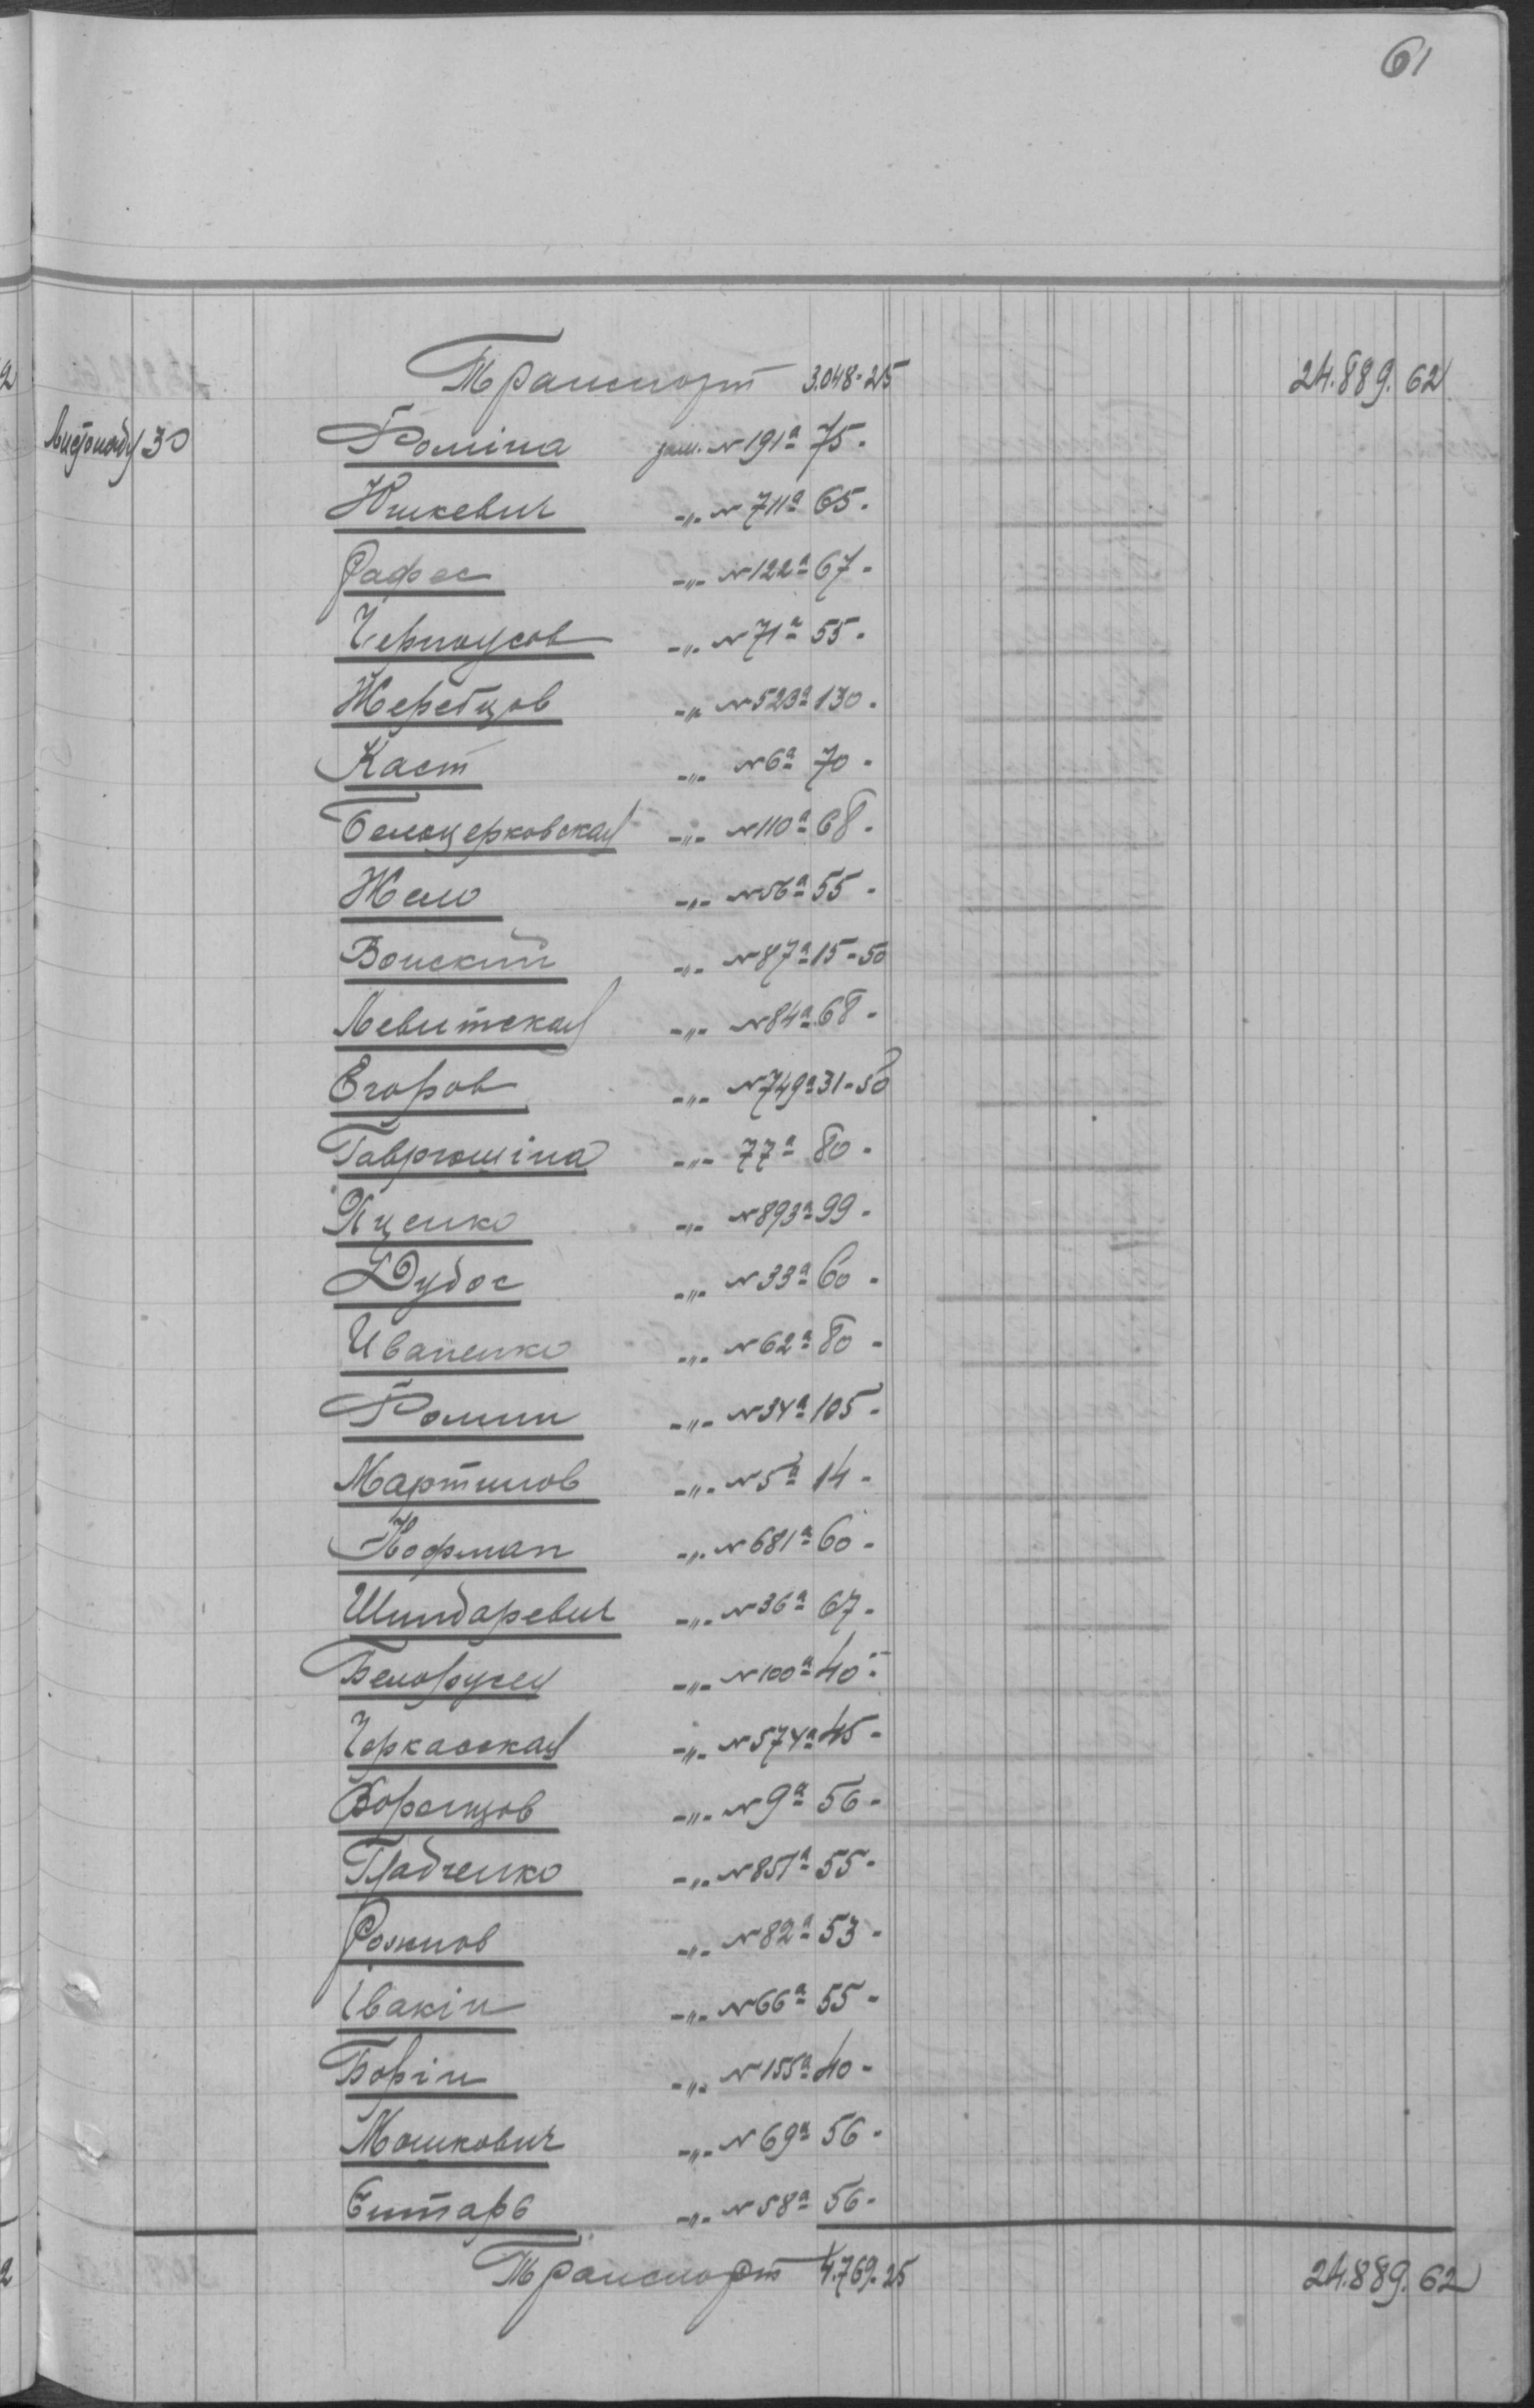 61
Транспорт 3.048-25 24.889.62
Листопад 30 Фоміна зош. №191а 75.
Юшкевич -"- №711а 65.
Рафес -"- №122а 67-
Черноусов -"- №71а 55.
Жеребцов -"- №523а 130.
Каст -"- №6а 70-
Белоцерковская -"- №110а 68.
Жело -"- №56а 55-
Вонский -"- №87а 15-50
Левитская -"- №84а 68-
Егоров -"- №749а 31-50
Гаврюшіна -"- 77а 80-
Яценко -"- №893а 99-
Дубос -"- №33а 60-
Иваненко -"- №62а 80-
Фомин -"- №34а 105-
Мартинов -"- №5а 14-
Кофман -"- №681а 60-
Шиндаревич -"- №36а 67-
Белорусец -"- №100а 40-
Черкасская -"- №574а 45-
Воронцов -"- №9а 56-
Грабченко -"- №851а 55-
Рожнов -"- №82а 53-
Івакін -"- №66а 55-
Борін -"- №155а 40-
Мошкович -"- №69а 56-
Битарь -"- №58а 56-
Транспорт 4.769.25 24.889.62